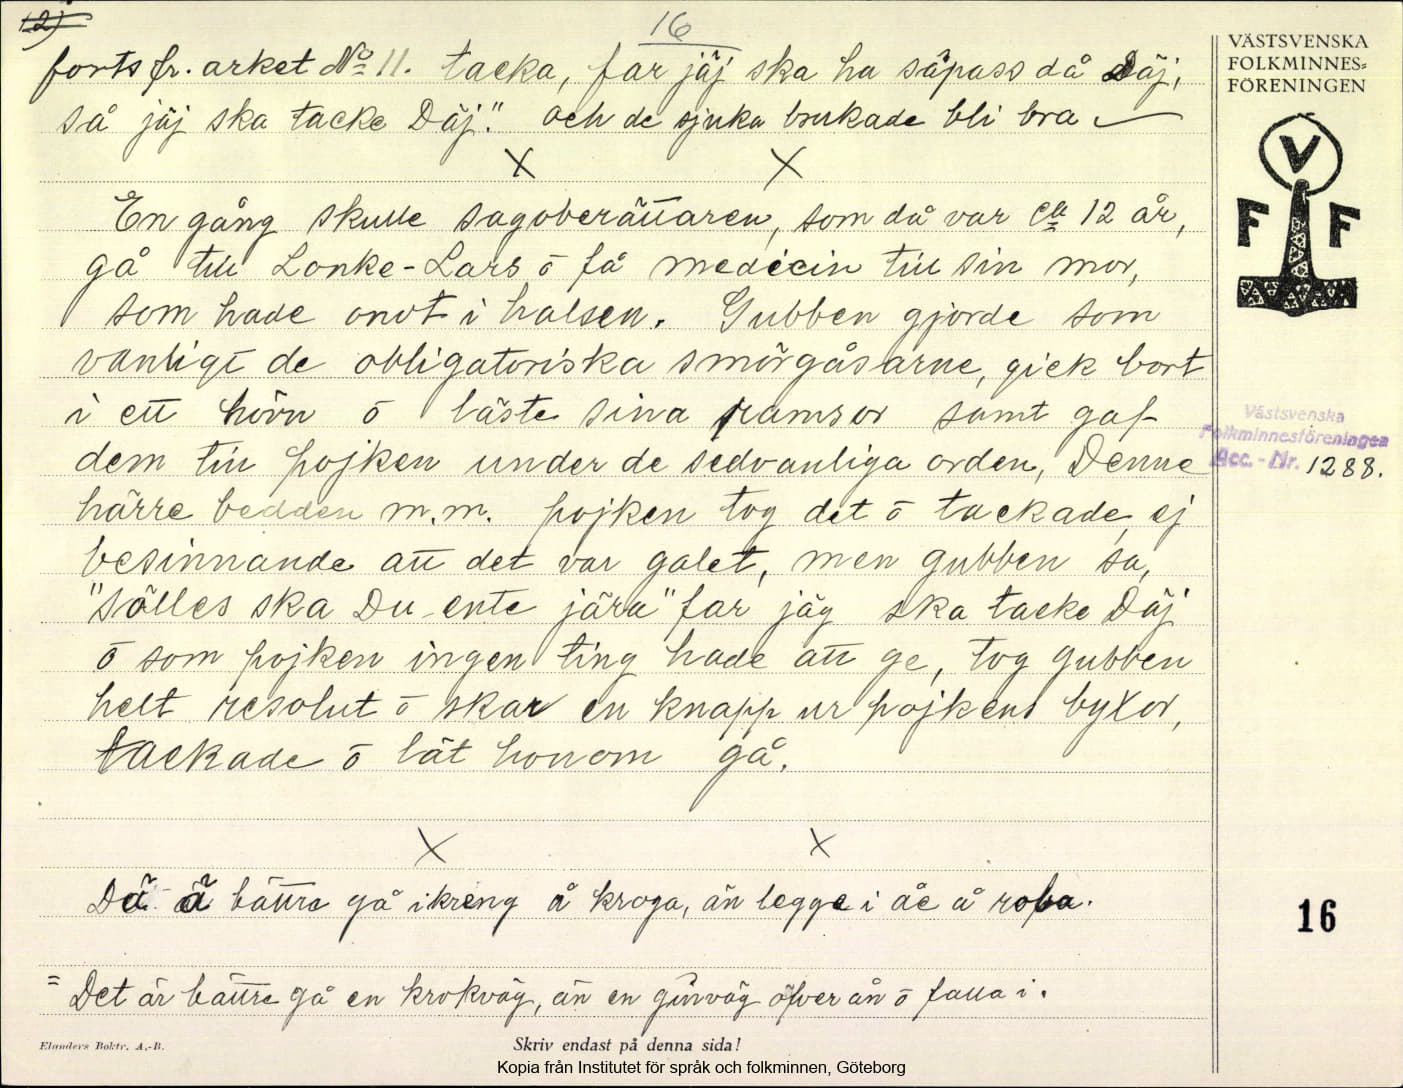 12)
16
forts fr. arket No 11. tacka, far jäj ska ha såpass då Däj,
så jäj ska tacke Däj." och de sjuka brukade bli bra
X X
En gång skulle sagoberättaren, som då var ca 12 år,
gå till Lonke-Lars ō få medicin till sin mor,
som hade ondt i halsen. Gubben gjorde som
vanligt de obligatoriska smörgåsarne, gick bort
i ett hörn ō läste sina ramsor samt gaf
dem till pojken under de sedvanliga orden, Denne
härre bedden m.m. pojken tog det ō tackade, ej
besinnande att det var galet, men gubben sa,
"sölles ska Du ente jära" far jäg ska tacke Däj
ō som pojken ingen ting hade att ge, tog gubben
helt resolut ō skar en knapp ur pojkens byxor,
tackade ō lät honom gå.
X X
Dä ä bättre gå ikreng å kroga, än legge i åe å ropa.
= Det är bättre gå en krokväg, än en ginväg öfver ån ō falla i.
Elanders Boktr. A.-B.
Skriv endast på denna sida!
Kopia från Institutet för språk och folkminnen, Göteborg
VÄSTSVENSKA
FOLKMINNES=
FÖRENINGEN
V
F F
Västsvenska
Folkminnesföreningen
Acc.-Nr. 1288.
16